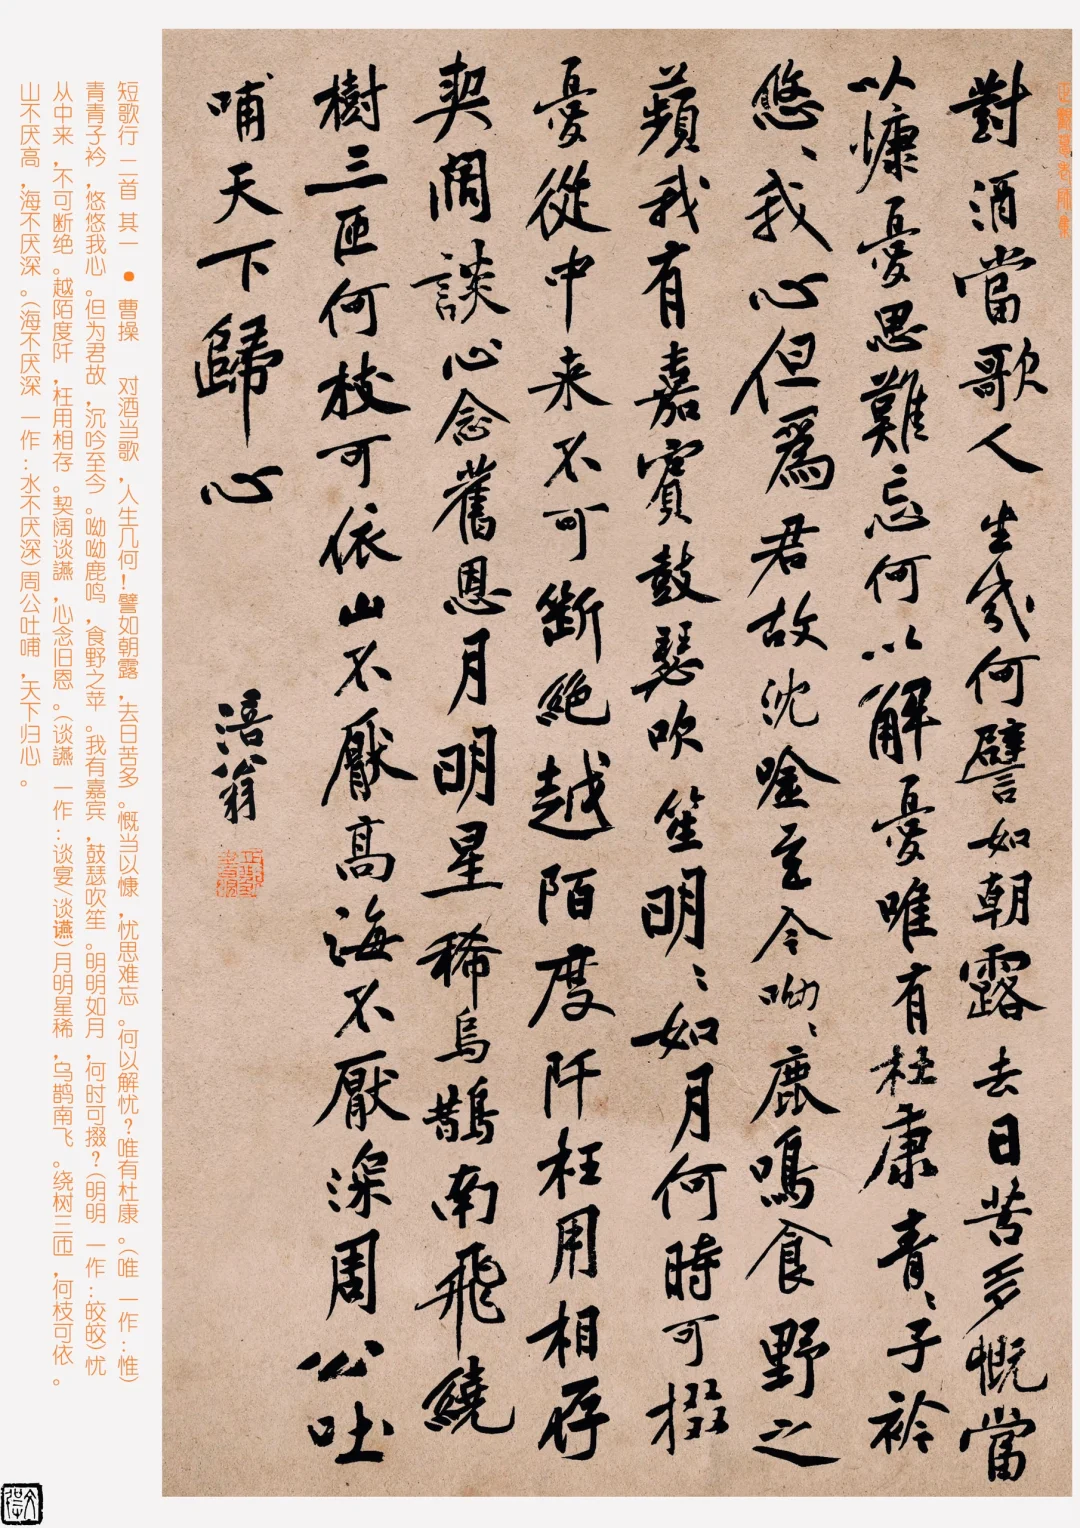 對酒當歌人生幾何譬如朝露去日苦多慨當
以慷憂思難忘何以解憂唯有杜康青〻子衿
悠〻我心但爲君故沈吟至今呦〻鹿鳴食野之
蘋我有嘉賓鼓瑟吹笙明〻如月何時可掇
憂從中来不可斷絕越陌度阡枉用相存
契闊談心念舊恩月明星稀烏鵲南飛繞
樹三匝何枝可依山不厭高海不厭深周公吐
哺天下歸心
涪翁
短歌行 二首 其一 ● 曹操 对酒当歌,人生几何!譬如朝露,去日苦多。慨当以慷,忧思难忘。何以解忧?唯有杜康。(唯 一作:惟)
青青子衿,悠悠我心。但为君故,沉吟至今。呦呦鹿鸣,食野之苹。我有嘉宾,鼓瑟吹笙。明明如月,何时可掇?(明明 一作:皎皎)忧
从中来,不可断绝。越陌度阡,枉用相存。契阔谈讌,心念旧恩。(谈讌 一作:谈宴/谈讌)月明星稀,乌鹊南飞。绕树三匝,何枝可依。
山不厌高,海不厌深。(海不厌深 一作:水不厌深)周公吐哺,天下归心。